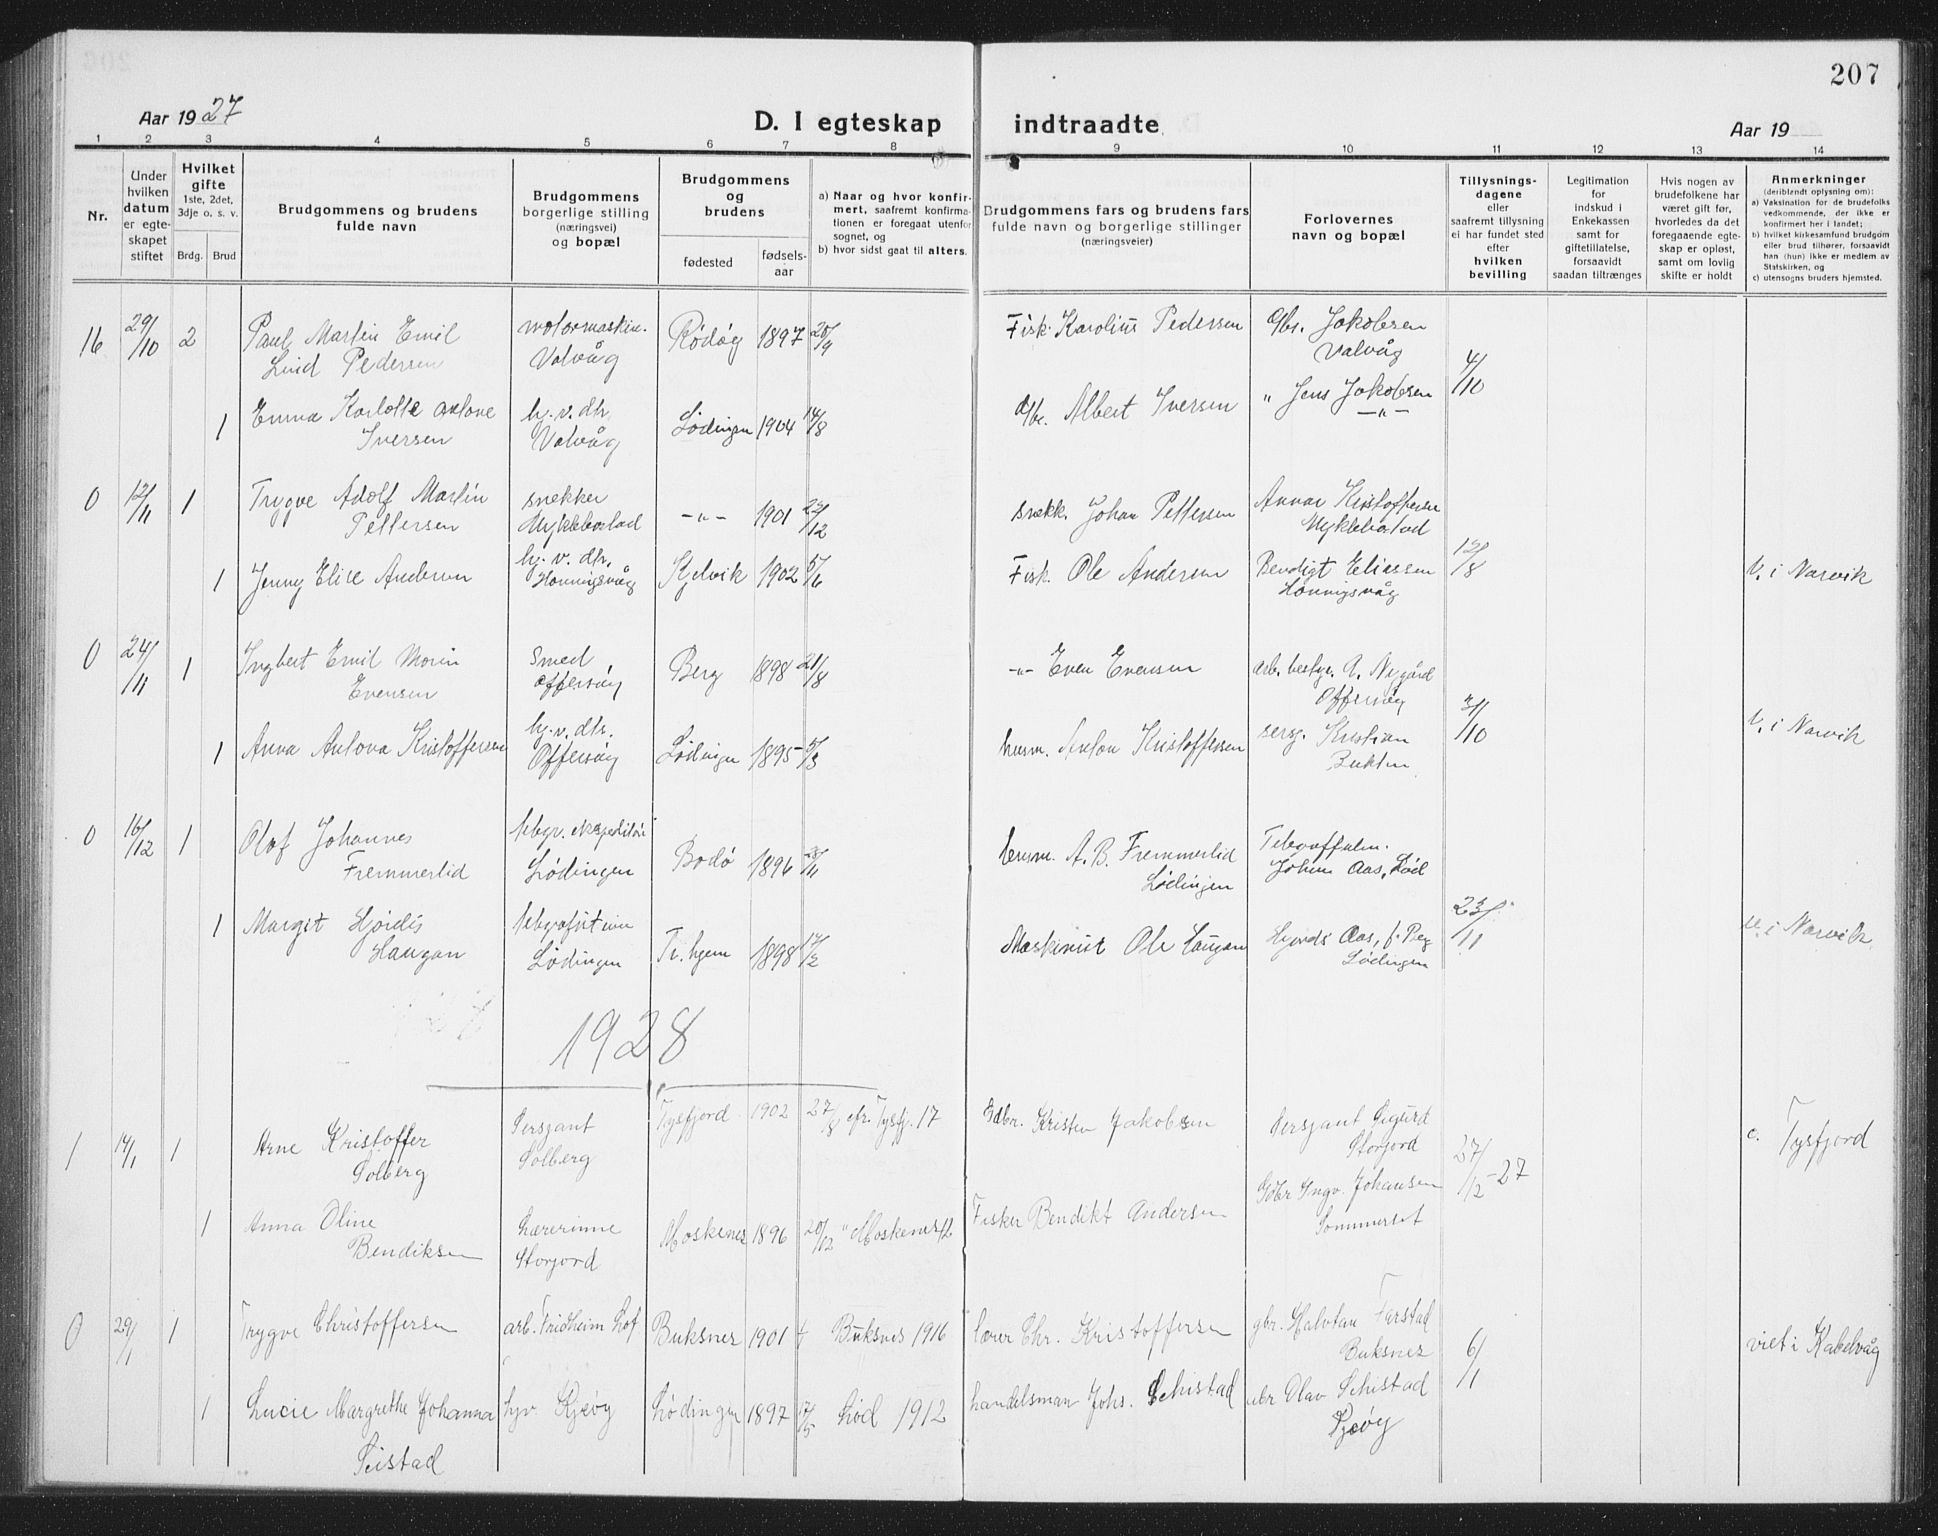 207
Aar 1927
D. I egteskap indtraadte
Aar 19
1 2 3 4 5 6 7 8 9 10 11 12 13 14
Nr.
Under hvilken datum er egteskapet stiftet
Hvilket gifte 1ste, 2det, 3dje o. s. v.
Brdg. Brud
Brudgommens og brudens fulde navn
Brudgommens borgerlige stilling (næringsvei) og bopæl
Brudgommens og brudens
fødested
fødselsaar
a) Naar og hvor konfirmert, saafremt konfirmationen er foregaat utenfor sognet, og
b) hvor sidst gaat til alters.
Brudgommens fars og brudens fars fulde navn og borgerlige stillinger (næringsveier)
Forlovernes navn og bopæl
Tillysningsdagene eller saafremt tillysning ei har fundet sted efter hvilken bevilling
Legitimation for indskud i Enkekassen samt for giftetillatelse, forsaavidt saadan tiltrænges
Hvis nogen av brudefolkene har været gift før, hvorledes da det foregaaende egteskap er opløst, samt om lovlig skifte er holdt
Anmerkninger (deriblendt oplysning om):
a) Vaksination for de brudefolks vedkommende, der ikke er konfirmert her i landet;
b) hvilket kirkesamfund brudgom eller brud tilhører, forsaavidt han (hun) ikke er medlem av Statskirken, og
c) utensogns bruders hjemsted.
16 29/10 2 Paul Martin Emil motormaskin. Rödöy 1897 20/9 Fisk. Karolius Pedersen Gbr. Jakobsen
Lind Pedersen Valvåg Valvåg 4/10
1 Emma Karlotte Iversen hj. v. dtr. Valvåg Lødingen 1904 14/8 Gbr. Albert Iversen " Jens Jakobsen -"-
0 12/11 1 Trygve Adolf Martin Pettersen snekker -"- 1901 snekk. Johan Pettersen Annar Kristoffersen
1 Jenny Elise Andersen hj. v. dtr. Honningsvåg Kjelvik 1902 5/6 Fisk. Ole Andersen Bendigt Eliassen Honningsvåg 12/8 V. i Narvik
0 24/11 1 Ingbert Emil Evensen Smed Offersøy Berg 1898 21/8 -"- Even Evensen Nygård Offersøy
1 Anna Antona Kristoffersen hj. v. dtr. Offersøy Lødingen 1895 5/3 husm. Anton Kristoffersen serg. Kristian /10 V. i Narvik
0 16/12 1 Olaf Johannes Fremmerlid Lødingen Bodø 1896 husm. A. B. Fremmerlid Lødingen Johan Aas, Lød
1 Margit Hjördis Haugan telegrafistinne Lødingen Tr. hjem 1898 Maskinist Ole Haugan Aas, Lødingen 23/11 V. i Narvik
1928
1 14/1 1 Arne Kristoffer Solberg Sersjant Solberg Tysfjord 1902 27/8 Tysfj. 17 Gdbr. Kristen Jakobsen Sersjant Sigurd Storjord 27/12-27 c. Tysfjord
1 Anna Oline Bendiksen Lærerinne Storjord Moskenes 1896 20/12 " Moskenes 12 Fisker Bendikt Andersen Gdbr Ingv. Johansen Sommerset
0 29/1 1 Trygve Christoffersen arb. Fridheim Lof Buksnes 1901 Buksnes 1916 lærer Chr. Kristoffersen gbr. Halvtan Farstad Buksnes 6/1 viet i Kabelvåg
1 Lucie Margrethe Johanna Seistad hjv. Kjeøy Lødingen 1897 17/5 Lød 1912 handelsman Johs. Schistad Olav Schistad Kjeøy